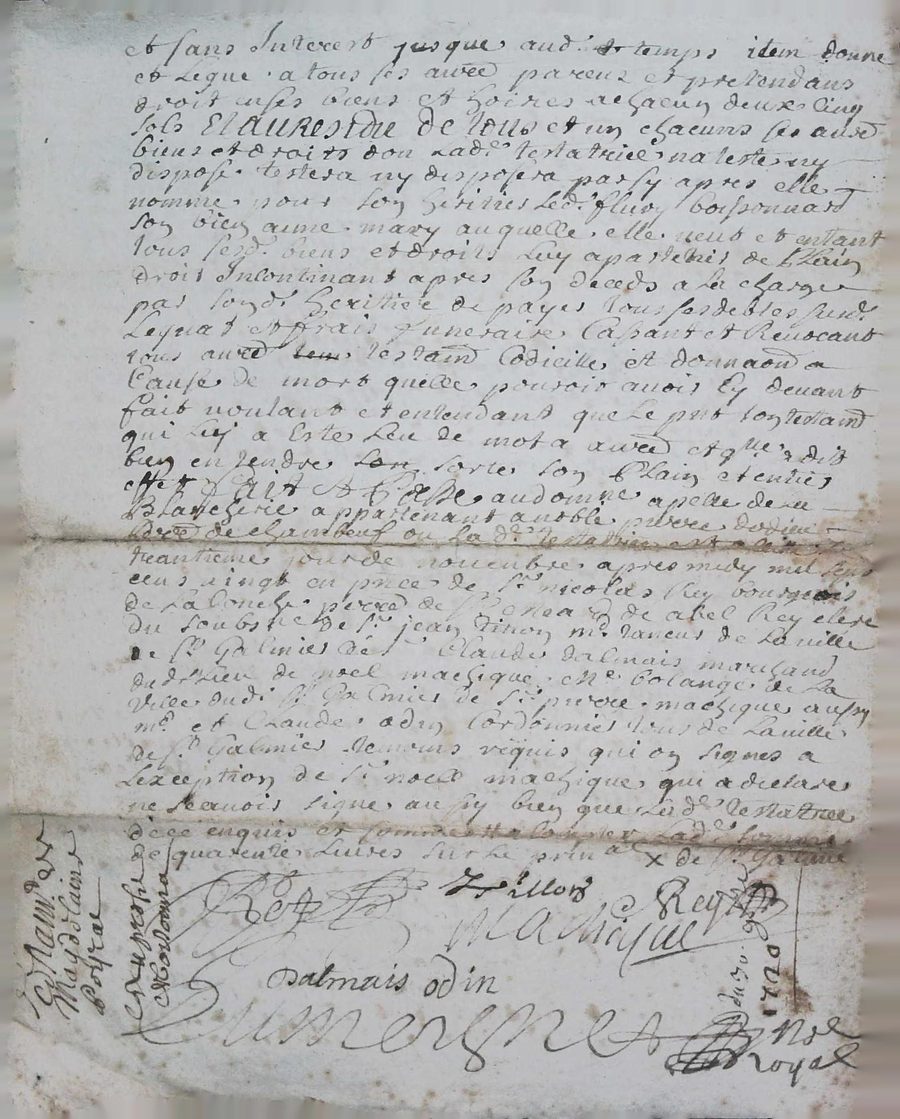 et sans Interest jusque aud. temps item donne
et Legue a tous ses autres parens et pretendans
droit en ses biens et hoirie a chacun deux cinq
sols Et au residu de tous et un chacuns ses autres
biens et droits don Lad. testatrice na teste ny
dispose testera ny disposera par sy apres elle
nomme pour son heritier led. fleury boissonnard
son bien aime mary auquelle elle veut et entant
tous sesd. biens et droits Luy apartenir de plain
droit Incontinant apres son deceds a la charge
par sond. heritier de payer tous ses debtes
Legnat et frais funeraire Cassant et Revocant
tous autres testam Codicille et donnaon a
Cause de mort quelle pouroit avoir Cy devant
fait voulant et entendant que Le pnt son testam
qui Luy a Este Leu de mot a autre et quelle a dit
bien entendre sorte son plain et entier
effet fait et Passe au domaine apelle de la
Blancherie appartenant a noble pierre dodieu
de chambeuf ou La d. testatrice
trantieme jour de novembre apres midy mil sept
cens vingt en pnce de Sr nicolas Rey bourgeois
de La Conche de Sr Meard de abel Rey clerc
du soubsne de Sr jean md taneur de La ville
de St Galmier de Sr Claude dalmais marchand
dud. Lieu de noel machique me bolange de La
Ville dudi St Galmier de Sr pierre machique aussy
md et Claude odin Cordonnier tous de La ville
de St Galmier temoins requis qui on signes a
Lexception de Sr noel machique qui a declare
ne scavoir signe aussy bien que Lad. testatrice
de ce enquis et sommes Lad. somme
de quarente Livres sur Le prinal x de St Galmie
Rey
Machique
Dalmais odin
Cumergne
Nre
Royal
du 30 9bre
1720
Madelaine
Poyra